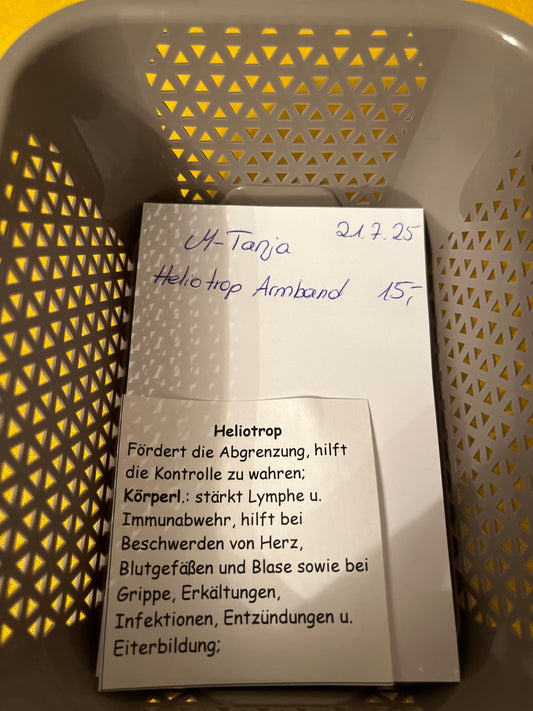 M-Tanja 21.7.25
Heliotrop Armband 15,-
Heliotrop
Fördert die Abgrenzung, hilft
die Kontrolle zu wahren;
Körperl.: stärkt Lymphe u.
Immunabwehr, hilft bei
Beschwerden von Herz,
Blutgefäßen und Blase sowie bei
Grippe, Erkältungen,
Infektionen, Entzündungen u.
Eiterbildung;